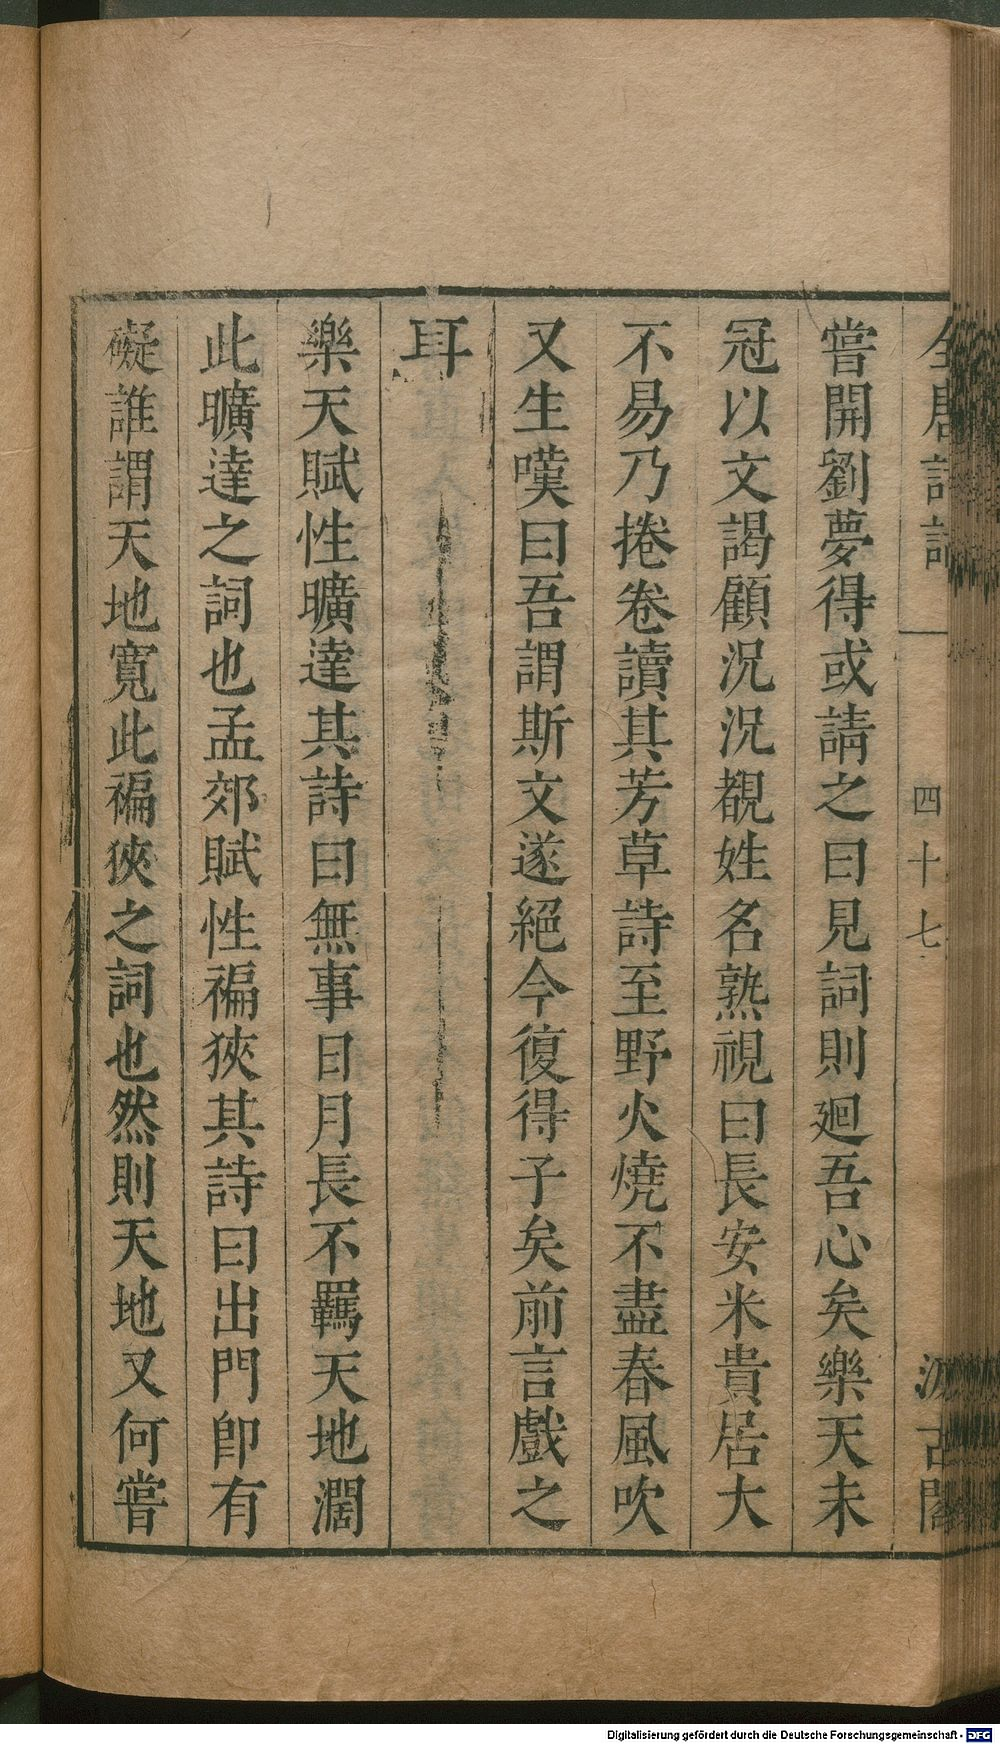 全唐詩話
四十七
汲古閣
嘗開劉夢得或請之曰見詞則廻吾心矣樂天未
冠以文謁顧況況覩姓名熟視曰長安米貴居大
不易乃捲卷讀其芳草詩至野火燒不盡春風吹
又生嘆曰吾謂斯文遂絕今復得子矣前言戲之
耳
樂天賦性曠達其詩曰無事日月長不羈天地濶
此曠達之詞也孟郊賦性褊狹其詩曰出門即有
礙誰謂天地寬此褊狹之詞也然則天地又何嘗
Digitalisierung gefördert durch die Deutsche Forschungsgemeinschaft - DFG